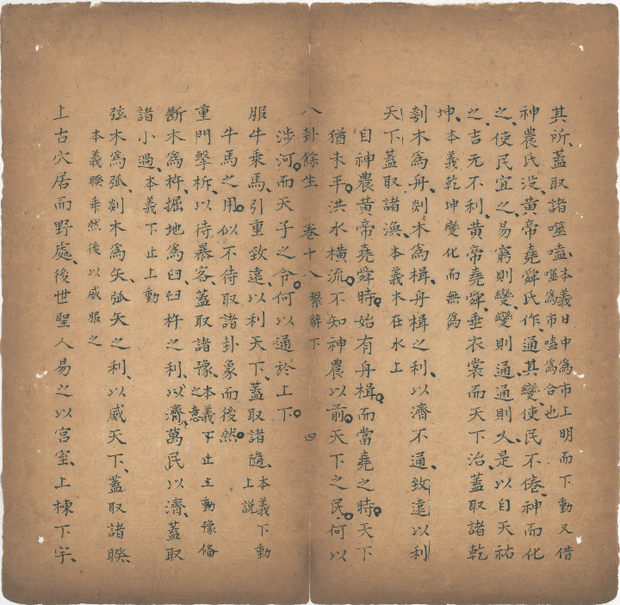 其所蓋取諸噬嗑本義日中為市上明而下動又借噬為市嗑為合也
神農氏沒黃帝堯舜氏作通其變使民不倦神而化
之使民宜之易窮則變變則通通則久是以自天祐
之吉无不利黃帝堯舜垂衣裳而天下治蓋取諸乾
坤本義乾坤變化而無為
刳木為舟剡木為楫舟楫之利以濟不通致遠以利
天下蓋取諸渙本義木在水上
自神農黃帝堯舜時始有舟楫而當堯之時天下
猶未平洪水橫流不知神農以前天下之民何以
八卦餘生 卷十八 繫辭下 四
涉河而天子之令何以通於上下
服牛乘馬引重致遠以利天下蓋取諸隨本義下動上說
牛馬之用似不待取諸卦象而後然
重門擊柝以待暴客蓋取諸豫本義下止上動豫備之意
斷木為杵掘地為臼臼杵之利以濟萬民以濟蓋取
諸小過本義下止上動
弦木為弧剡木為矢弧矢之利以威天下蓋取諸睽
本義睽乖然後以威服之
上古穴居而野處後世聖人易之以宮室上棟下宇